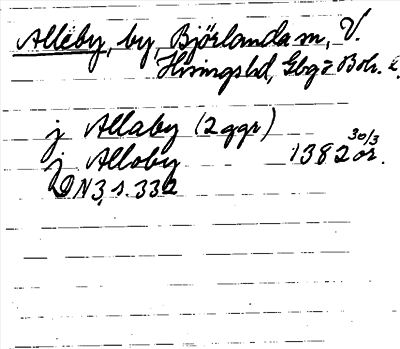 Alleby, by, Björlanda sn, V.
Hisingshd, Gbgs Boh. l.
j Allaby (2 ggr)
j Alloby 1382 30/3 or.
DN 3, s. 332